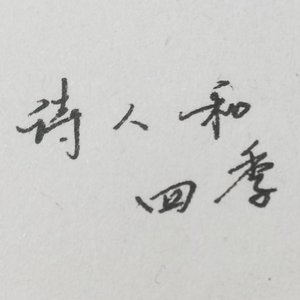 诗人和
四季